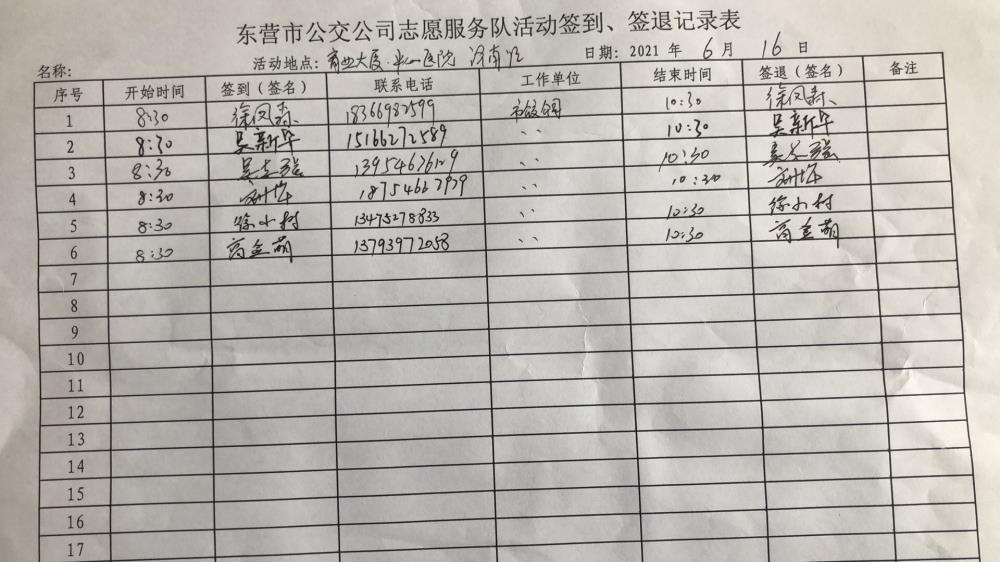 东营市公交公司志愿服务队活动签到、签退记录表
名称： 活动地点：商业大厦 中心医院 济南路 日期：2021 年 6 月 16 日
序号 开始时间 签到（签名） 联系电话 工作单位 结束时间 签退（签名） 备注
1 8:30 徐凤森 18366982599 10:30 徐凤森
2 8:30 吴新华 15166272589 〃 10:30 吴新华
3 8:30 姜志强 〃 10:30 姜志强
4 8:30 18754667979 〃 10:30
5 8:30 徐小村 13475278833 〃 10:30 徐小村
6 8:30 高孟萌 13793972058 〃 10:30 高孟萌
7
8
9
10
11
12
13
14
15
16
17